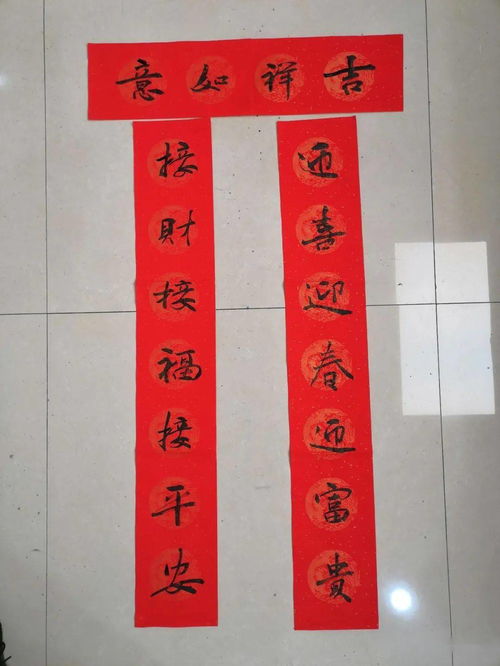 吉祥如意
迎喜迎春迎富貴
接財接福接平安